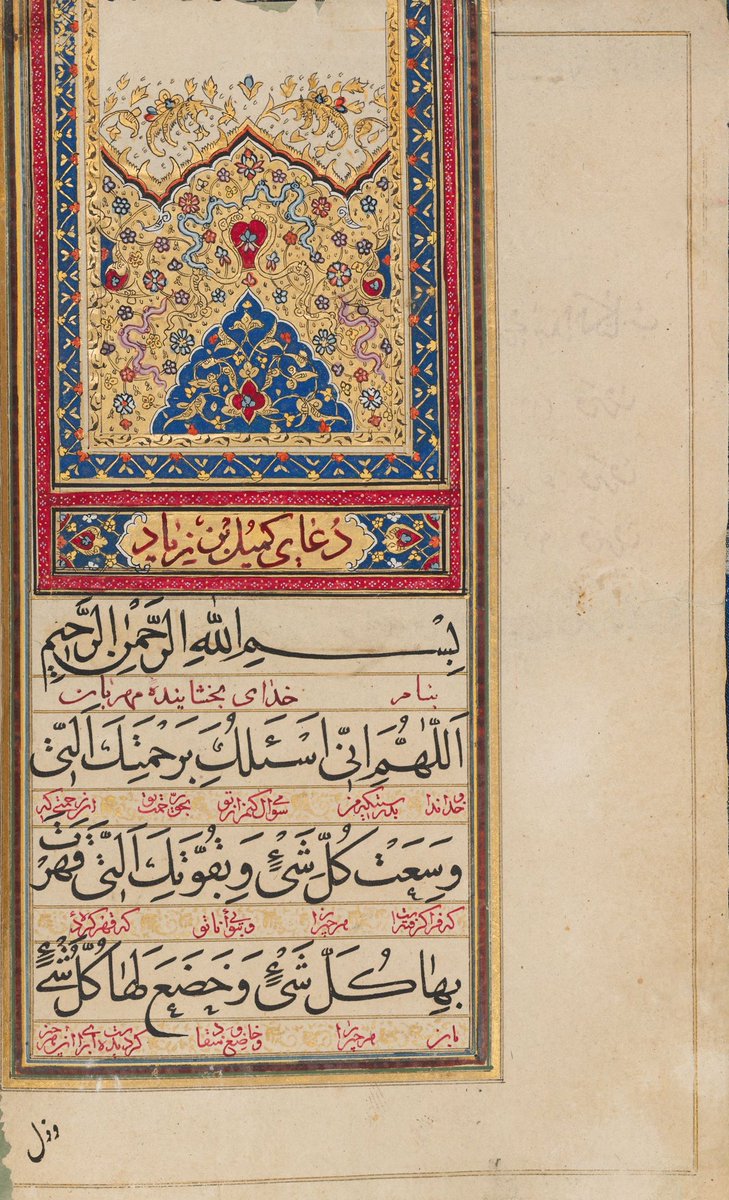 دعای کمیل بن زیاد
بِسْمِ اللهِ الرَّحْمٰنِ الرَّحِیمِ
بنام خدای بخشاینده مهربان
اَللّٰهُمَّ اِنّی اَسْئَلُكَ بِرَحْمَتِكَ الَّتی
خداوندا بدرستیکه من سوال میکنم از تو بحق رحمت تو
وَسِعَتْ كُلَّ شَیْءٍ وَ بِقُوَّتِكَ الَّتی قَهَرْتَ
که فرا گرفته است هر چیز را و بتوانائی تو که قهر کرده
بِهٰا كُلَّ شَیْءٍ وَ خَضَعَ لَهٰا كُلُّ شَیْءٍ
هر چیز را و خاضع
وذل